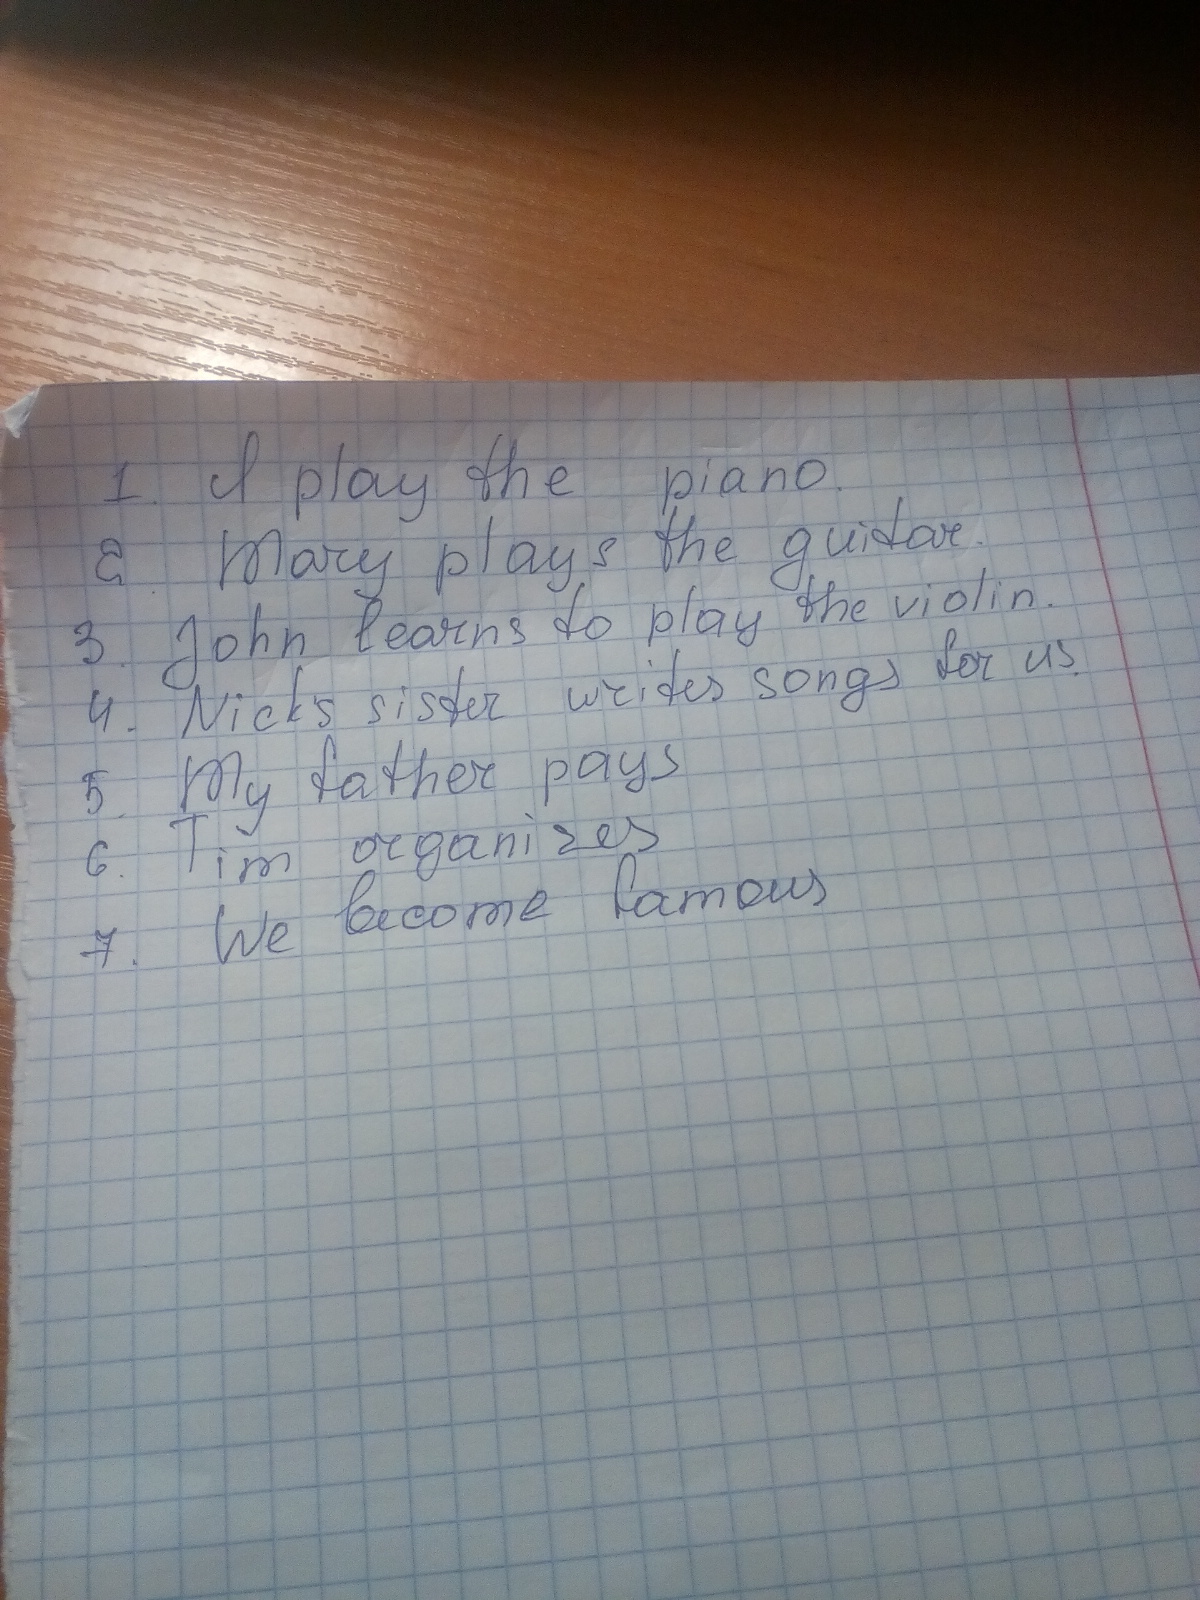 1. I play the piano.
2. Mary plays the guitar.
3. John learns to play the violin.
4. Nick's sister writes songs for us.
5. My father pays
6. Tim organizes
7. We become famous